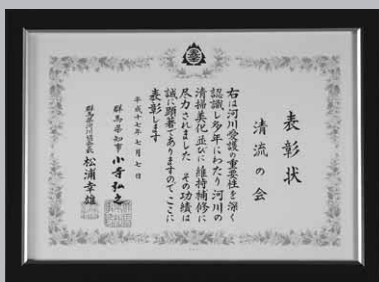 表彰状
清流の会
右は河川愛護の重要性を深く
認識し多年にわたり河川の
清掃美化並びに維持補修に
尽力されました その功績は
誠に顕著でありますのでここに
表彰します
平成十七年七月七日
群馬県知事 小寺弘之
松浦幸雄